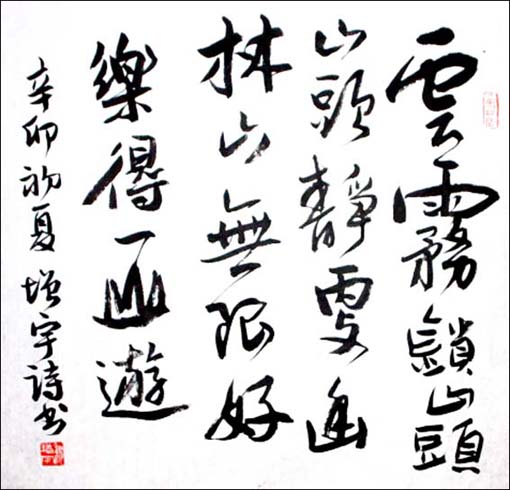 雲霧鎖山頭
山頭靜更幽
林山無限好
樂得一遊
辛卯初夏 增宇詩书